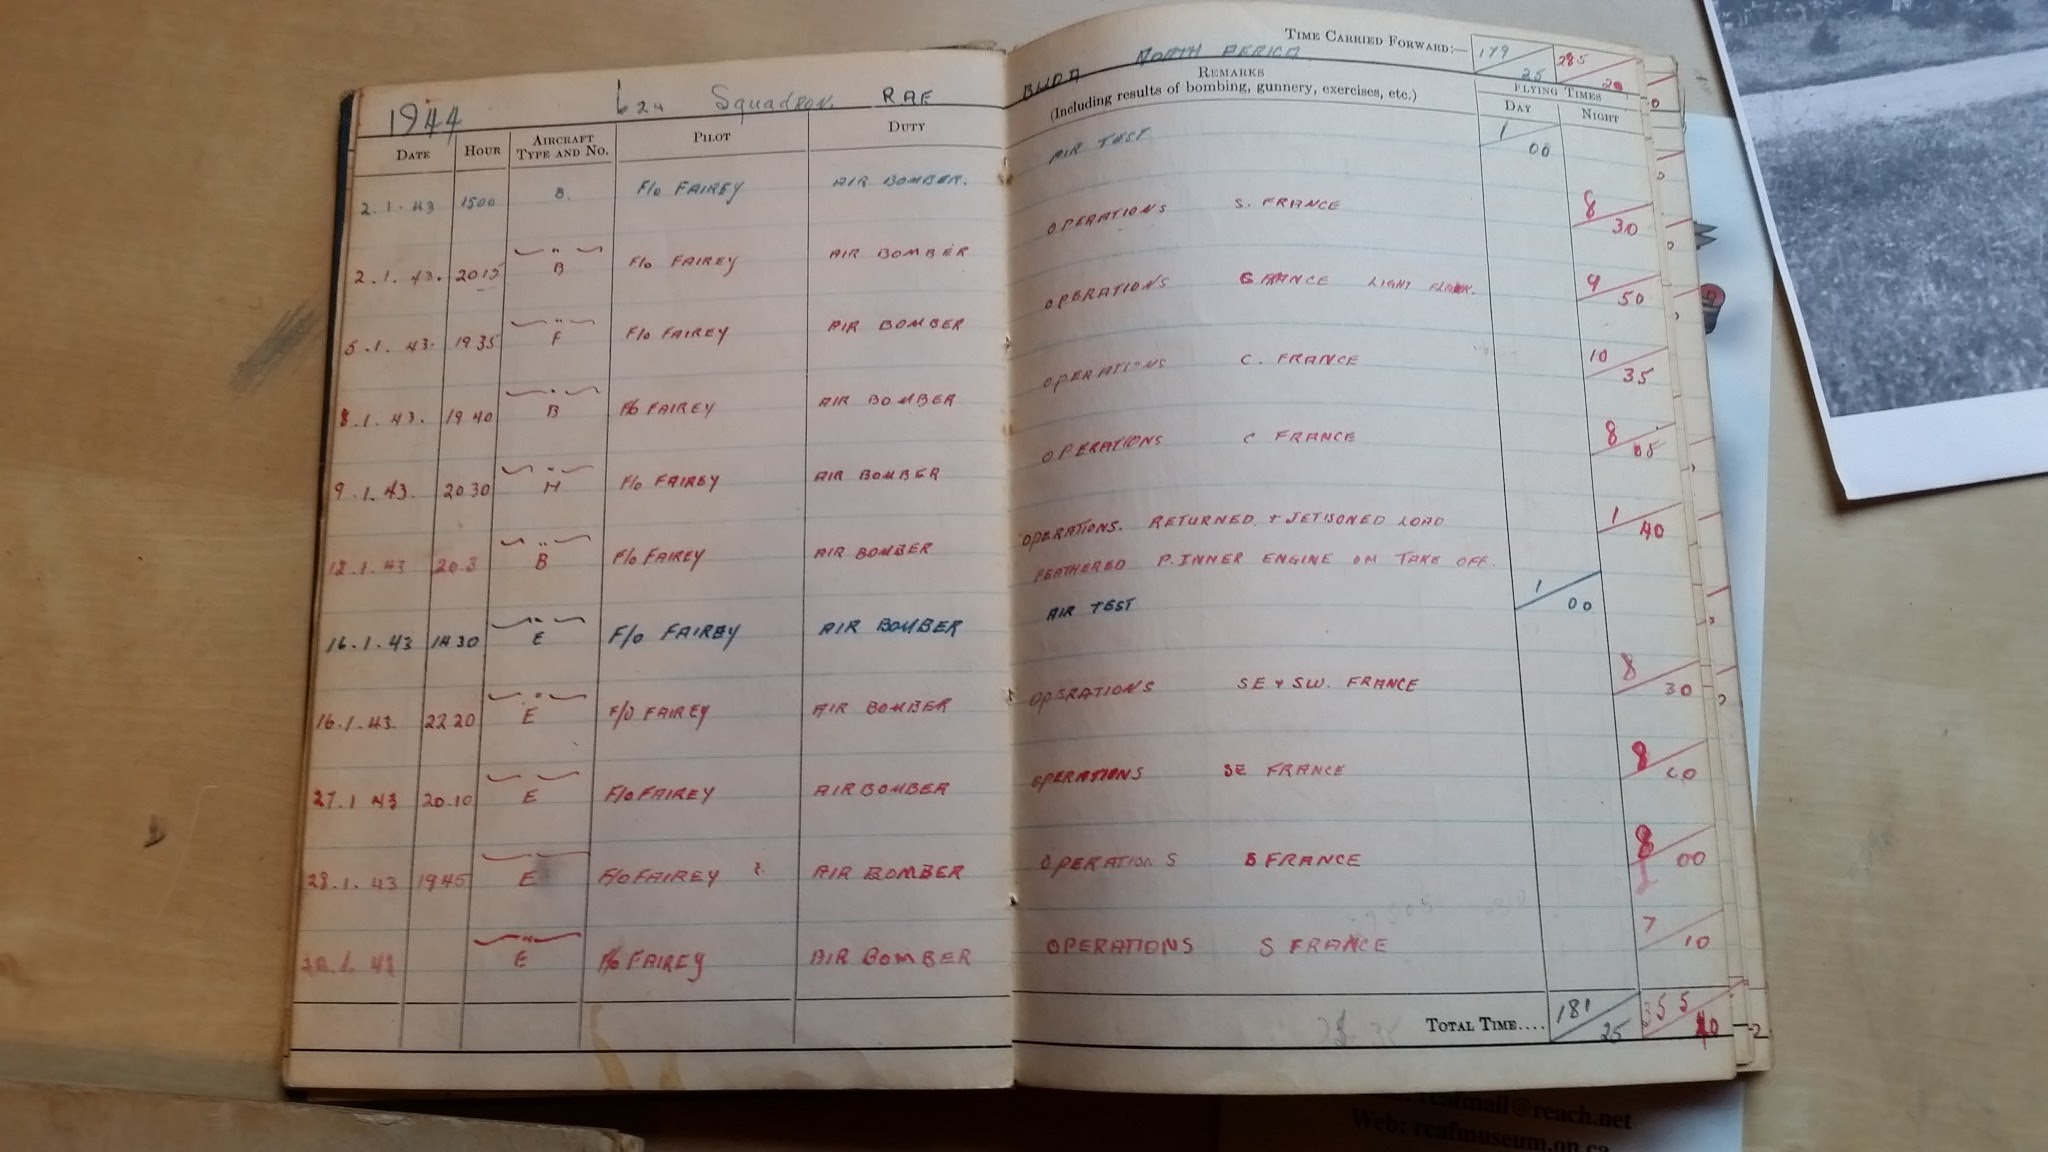 1944 624 Squadron. RAF
DATE HOUR AIRCRAFT TYPE AND NO. PILOT DUTY
2.1.43 1500 B. F/o FAIREY AIR BOMBER.
2.1.43. 2015 " B F/o FAIREY AIR BOMBER
5.1.43. 1935 " F F/o FAIREY AIR BOMBER
8.1.43. 1940 " B F/o FAIREY AIR BOMBER
9.1.43. 2030 " H F/o FAIREY AIR BOMBER
12.1.43 20.3 " B F/o FAIREY AIR BOMBER
16.1.43 1430 " E F/o FAIREY AIR BOMBER
16.1.43. 2220 " E F/o FAIREY AIR BOMBER
27.1 43 20.10 E F/o FAIREY AIR BOMBER
28.1.43 1945 E F/o FAIREY AIR BOMBER
" E F/o FAIREY AIR BOMBER
BLIDA NORTH AERICA TIME CARRIED FORWARD:— 179 25 285 20
REMARKS
(Including results of bombing, gunnery, exercises, etc.)
FLYING TIMES
DAY NIGHT
AIR TEST 1 00
OPERATIONS S. FRANCE 8 30
OPERATIONS FRANCE LIGHT FLAK. 9 50
OPERATIONS C. FRANCE 10 35
OPERATIONS C FRANCE 8 05
OPERATIONS. RETURNED + JETISONED LOAD 1 40
FEATHERED P. INNER ENGINE ON TAKE OFF.
AIR TEST 1 00
OPERATIONS SE + SW. FRANCE 8 30
OPERATIONS SE FRANCE 8
OPERATIONS S FRANCE 8 00
OPERATIONS S FRANCE 7 10
TOTAL TIME.... 181 25 355 40
rcafmail@reach.net
Web: rcafmuseum.on.ca